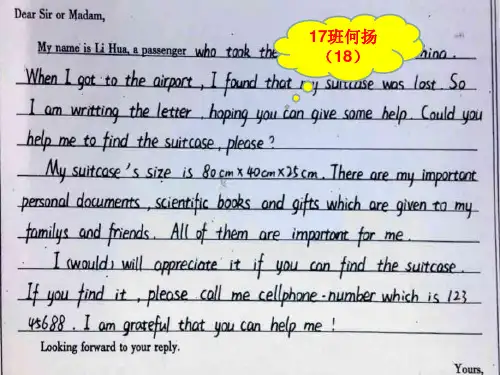 Dear Sir or Madam,
17班何扬
（18）
My name is Li Hua, a passenger who took the
When I got to the airport, I found that my suitcase was lost. So
I am writting the letter, hoping you can give some help. Could you
help me to find the suitcase, please?
My suitcase's size is 80cm×40cm×25cm. There are my important
personal documents, scientific books and gifts which are given to my
familys and friends. All of them are important for me.
I (would) will appreciate it if you can find the suitcase.
If you find it, please call me cellphone-number which is 123
45688. I am grateful that you can help me!
Looking forward to your reply.
Yours,